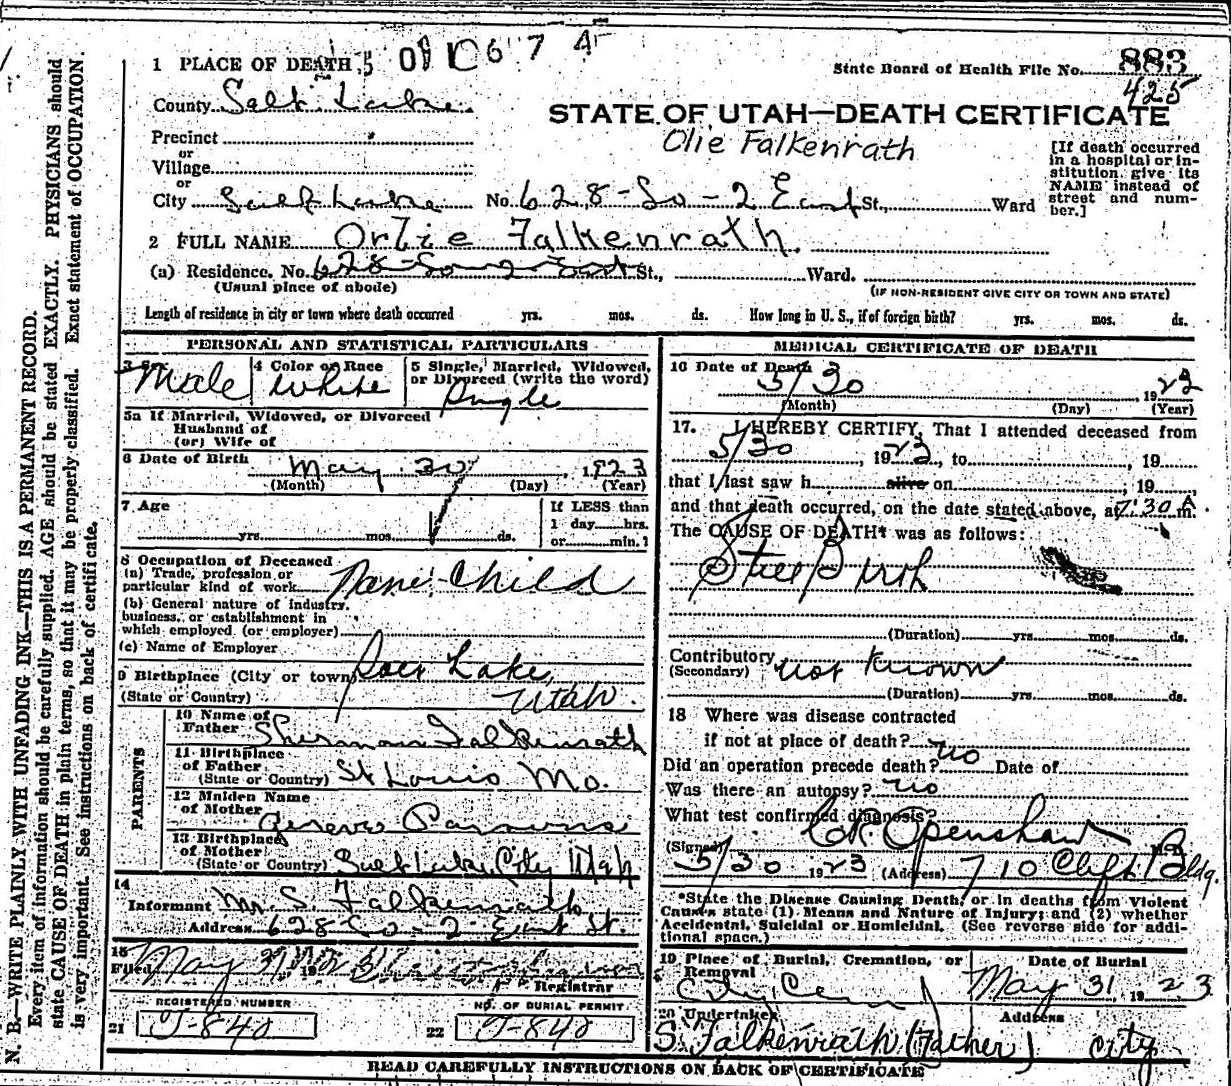 1 PLACE OF DEATH
State Board of Health File No. 883
425
County Salt Lake
STATE OF UTAH—DEATH CERTIFICATE
Olie Falkenrath
Precinct
or
Village
or
City Salt Lake No. 628-So-2 East St., Ward
[If death occurred
in a hospital or in-
stitution give its
NAME instead of
street and num-
ber.]
2 FULL NAME Orlie Falkenrath
(a) Residence. No. 628-So-2-East St., Ward.
(Usual place of abode)
(IF NON-RESIDENT GIVE CITY OR TOWN AND STATE)
Length of residence in city or town where death occurred yrs. mos. ds. How long in U. S., if of foreign birth? yrs. mos. ds.
PERSONAL AND STATISTICAL PARTICULARS
3 Sex
Male
4 Color or Race
White
5 Single, Married, Widowed,
or Divorced (write the word)
Single
5a If Married, Widowed, or Divorced
Husband of
(or) Wife of
6 Date of Birth
May 30, 1923
(Month) (Day) (Year)
7 Age
yrs. mos. ds.
If LESS than
1 day hrs.
or min.?
8 Occupation of Deceased
(a) Trade, profession or
particular kind of work None Child
(b) General nature of industry,
business, or establishment in
which employed (or employer)
(c) Name of Employer
9 Birthplace (City or town) Salt Lake,
(State or Country) Utah.
PARENTS
10 Name of
Father Sherman Falkenrath
11 Birthplace
of Father
(State or Country) St Louis Mo.
12 Maiden Name
of Mother Geneva Parsons
13 Birthplace
of Mother
(State or Country) Salt Lake City Utah
14
Informant Mr. S. Falkenrath
Address 628-So-2-East St.
15
Filed May 31
Registrar
REGISTERED NUMBER
21 J-840
NO. OF BURIAL PERMIT
22 J-840
MEDICAL CERTIFICATE OF DEATH
16 Date of Death
5/30 1923
(Month) (Day) (Year)
17. I HEREBY CERTIFY, That I attended deceased from
5/30, 1923, to , 19
that I last saw h alive on , 19
and that death occurred, on the date stated above, at 7:30 A m.
The CAUSE OF DEATH* was as follows:
Still Birth
(Duration) yrs. mos. ds.
Contributory not known
(Secondary)
(Duration) yrs. mos. ds.
18 Where was disease contracted
if not at place of death?
Did an operation precede death? no Date of
Was there an autopsy? no
What test confirmed diagnosis?
(Signed) C R Openshaw M.D.
5/30 1923 (Address) 710 Clift Bldg.
*State the Disease Causing Death, or in deaths from Violent
Causes state (1) Means and Nature of Injury; and (2) whether
Accidental, Suicidal or Homicidal. (See reverse side for addi-
tional space.)
19 Place of Burial, Cremation, or
Removal
City Cem
Date of Burial
May 31 1923
20 Undertaker
S. Falkenrath (Father)
Address
City
READ CAREFULLY INSTRUCTIONS ON BACK OF CERTIFICATE
N. B.—WRITE PLAINLY WITH UNFADING INK—THIS IS A PERMANENT RECORD.
Every item of information should be carefully supplied. AGE should be stated EXACTLY. PHYSICIANS should
state CAUSE OF DEATH in plain terms, so that it may be properly classified. Exact statement of OCCUPATION
is very important. See instructions on back of certificate.